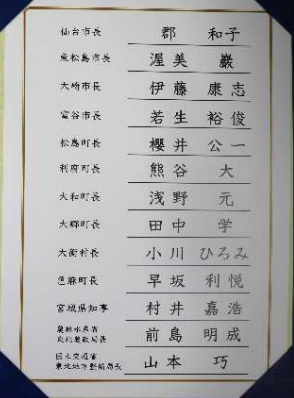 仙台市長 郡 和子
東松島市長 渥美 巖
大崎市長 伊藤 康志
富谷市長 若生 裕俊
松島町長 櫻井 公一
利府町長 熊谷 大
大和町長 浅野 元
大郷町長 田中 学
大衡村長 小川 ひろみ
色麻町長 早坂 利悦
宮城県知事 村井 嘉浩
農林水産省
東北農政局長 前島 明成
国土交通省
東北地方整備局長 山本 巧